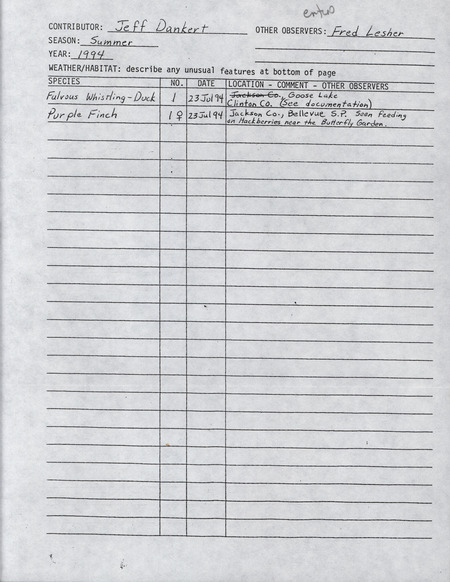 CONTRIBUTOR: Jeff Dankert
OTHER OBSERVERS: Fred Lesher
SEASON: Summer
YEAR: 1994
WEATHER/HABITAT: describe any unusual features at bottom of page
SPECIES NO. DATE LOCATION - COMMENT - OTHER OBSERVERS
Fulvous Whistling-Duck 1 23 Jul 94 Jackson Co., Goose Lake
Clinton Co. (See documentation)
Purple Finch 1 ♀ 23 Jul 94 Jackson Co., Bellevue S.P. Seen feeding
on Hackberries near the Butterfly Garden.